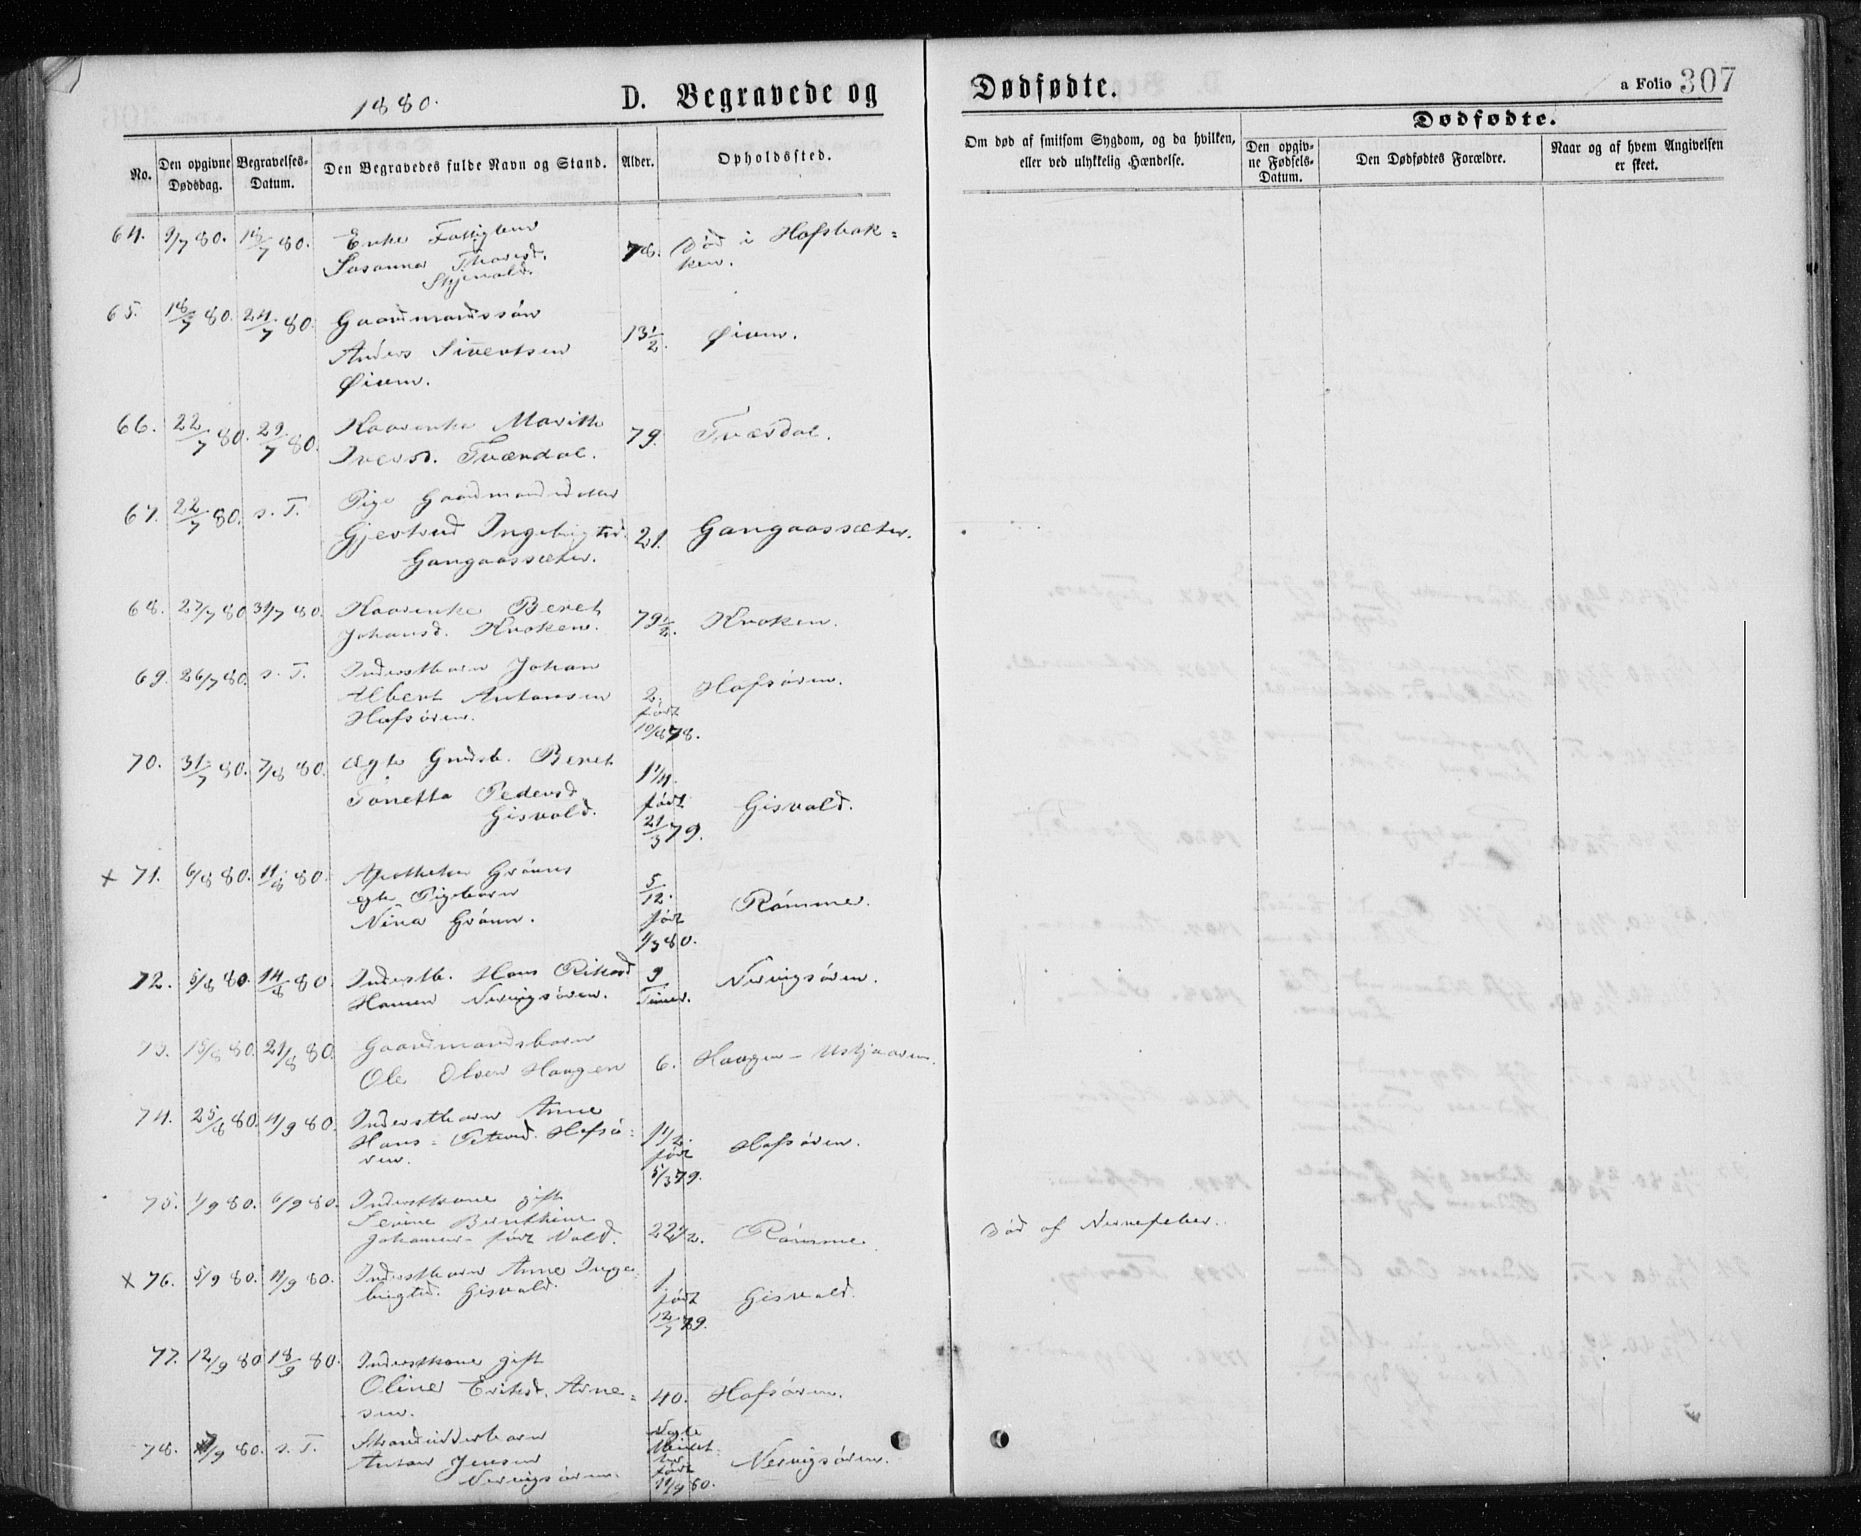 1880.
D. Begravede og Dødfødte.
a Folio 307
No.
Den opgivne Dødsdag.
Begravelses-Datum.
Den Begravedes fulde Navn og Stand.
Alder.
Opholdssted.
Om død af smitsom Sygdom, og da hvilken, eller ved ulykkelig Hændelse.
Dødfødte.
Den opgivne Fødsels-Datum.
Den Dødfødtes Forældre.
Naar og af hvem Angivelsen er skeet.
64. 9/7 80. 78. Død i Hofsbak=
Enke
Susanna
ken.
65. 18/7 80. 24/7 80. Gaardmandssøn
Anders Sivertsen 13 1/2 Øien.
Øien.
66. 22/7 80. 29/7 80. Kaarenke Marith
Iversd. Tværdal. 79. Tværdal.
67. 22/7 80. s. T. Pige Gaardmandsdatter
Gjertrud Ingebrigtsd. 21. Gangaassæter.
Gangaassæter.
68. 27/7 80 31/7 80. Kaarenke Beret
Johansd. Kroken. 79 1/2. Kroken.
69. 26/7 80. s. T. Inderstbarn Johan
Albert Antonsen 2. Hofsøren.
Hofsøren. født
10/8 78.
70. 31/7 80. 7/8 80. Ægte Beret
Tonetta Pedersd 1 1/4. født
Gisvold. 21/3 79. Gisvold.
× 71. 6/8 80. 11/8 80. Apotheker Grønns
egte Pigebarn 5/12. født
Nina Grønn. 1/3 80. Rømme.
72. 5/8 80 14/8 80. Inderstb. Hans Rikard
Hansen Nervigsøren. 9 Timer. Nervigsøren.
73. 15/8 80. 21/8 80. Gaardmandsbarn
Ole Olsen Haugen 6. Haugen - Ustjaaren.
74. 25/8 80. 4/9 80. Inderstbarn Anne
Hans = Petersd. Hofsø= 1 1/2. født Hofsøren.
ren. 5/3 79.
75. 1/9 80. 6/9 80. Inderstkone gift
Serine Bernthine
født Vold. 22 1/2. Rømme. Død af Nervefeber.
× 76. 5/9 80. 11/9 80. Inderstbarn Anne Inge=
brigtsd. Gisvold. 1. født Gisvold.
12/7 79.
77. 12/9 80 18/9 80. Inderstkone gift
Oline Eriksd. Arne= 40. Hofsøren.
sen.
78. 80. s. T. Strandsidderbarn
Anton Jensen født Nervigsøren.
Nervigsøren. 80.